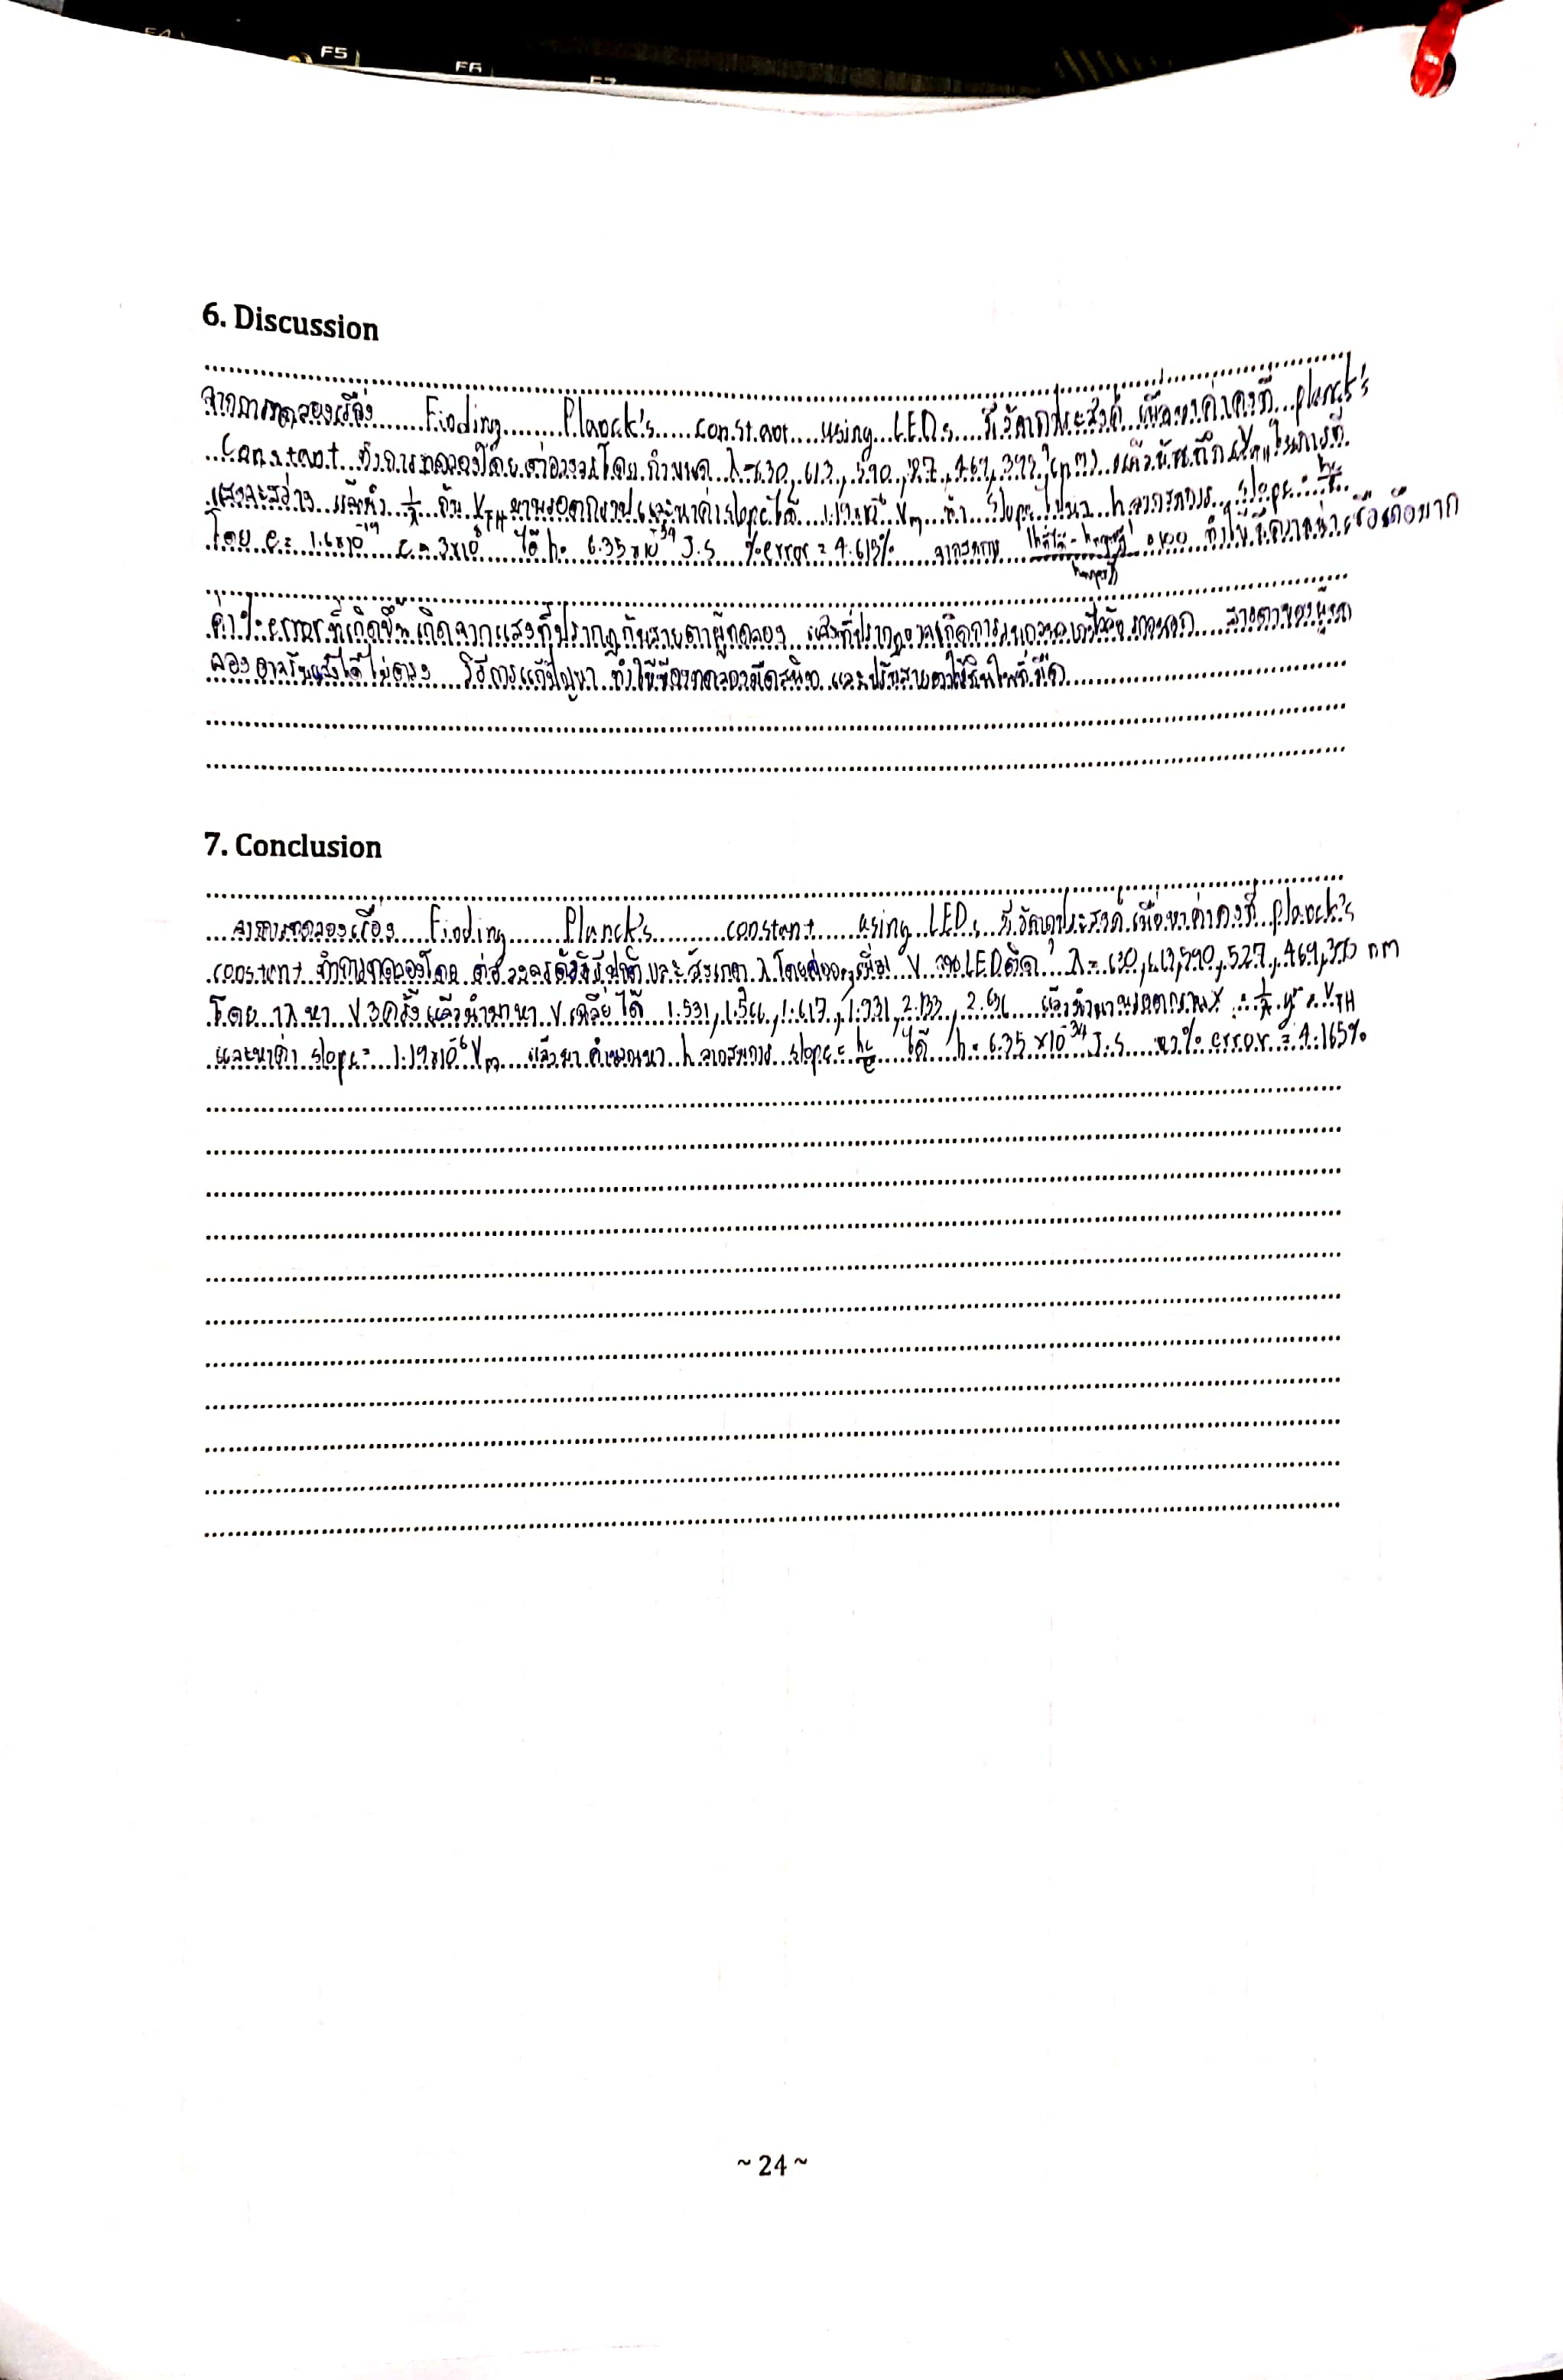 F5
F6
F7
6. Discussion
จากการทดลองเรื่อง Finding Planck's constant using LEDs มีวัตถุประสงค์ เพื่อหาค่าคงที่ planck's
Constant ทำการทดลองโดย ต่อวงจรโดย กำหนด λ = 630, 613, 590, 527, 469, (nm) แล้ว ในการที่
แสงจะสว่าง แล้วนำ 1/λ กับ V_TH มาพลอตกราฟ และหาค่า slope ได้ Vm นำ slope ไปหา h จากสมการ slope = hc/e
โดย e = 1.6x10^-19 c = 3x10^8 ได้ h = 6.35x10^-34 J.s %error = 4.613% จากสมการ x100 ทำให้มีความน่าเชื่อถือมาก
ค่า % error ที่เกิดขึ้น เกิดจากแสงที่ปรากฏกับสายตาผู้ทดลอง แสงที่ปรากฏอาจเกิดการรบกวน สายตาของผู้ทด
ลองอาจรับแสงได้ไม่ตรง วิธีการแก้ปัญหา ทำให้ห้องทดลองมืดสนิท และปรับสายตาให้ชินในที่มืด
7. Conclusion
จากการทดลองเรื่อง Finding Planck's constant using LEDs มีวัตถุประสงค์ เพื่อหาค่าคงที่ planck's
constant ทำการทดลองโดย ต่อวงจร และสังเกต λ โดยค่อยๆ เพิ่ม V จน LED ติด λ = 630, 613, 590, 527, 469, nm
โดย 1 λ หา V 3 ครั้ง แล้วนำมาหา V เฉลี่ย ได้ 1.531, 1.566, 1.617, 1.931, 2.133, 2.636 แล้วนำมาพลอตกราฟ x = 1/λ y = V_TH
และหาค่า slope = 1.19x10^-6 Vm แล้วมาคำนวณหา h จากสมการ slope = hc/e ได้ h = 6.35 x10^-34 J.s % error = 4.165%
~ 24 ~